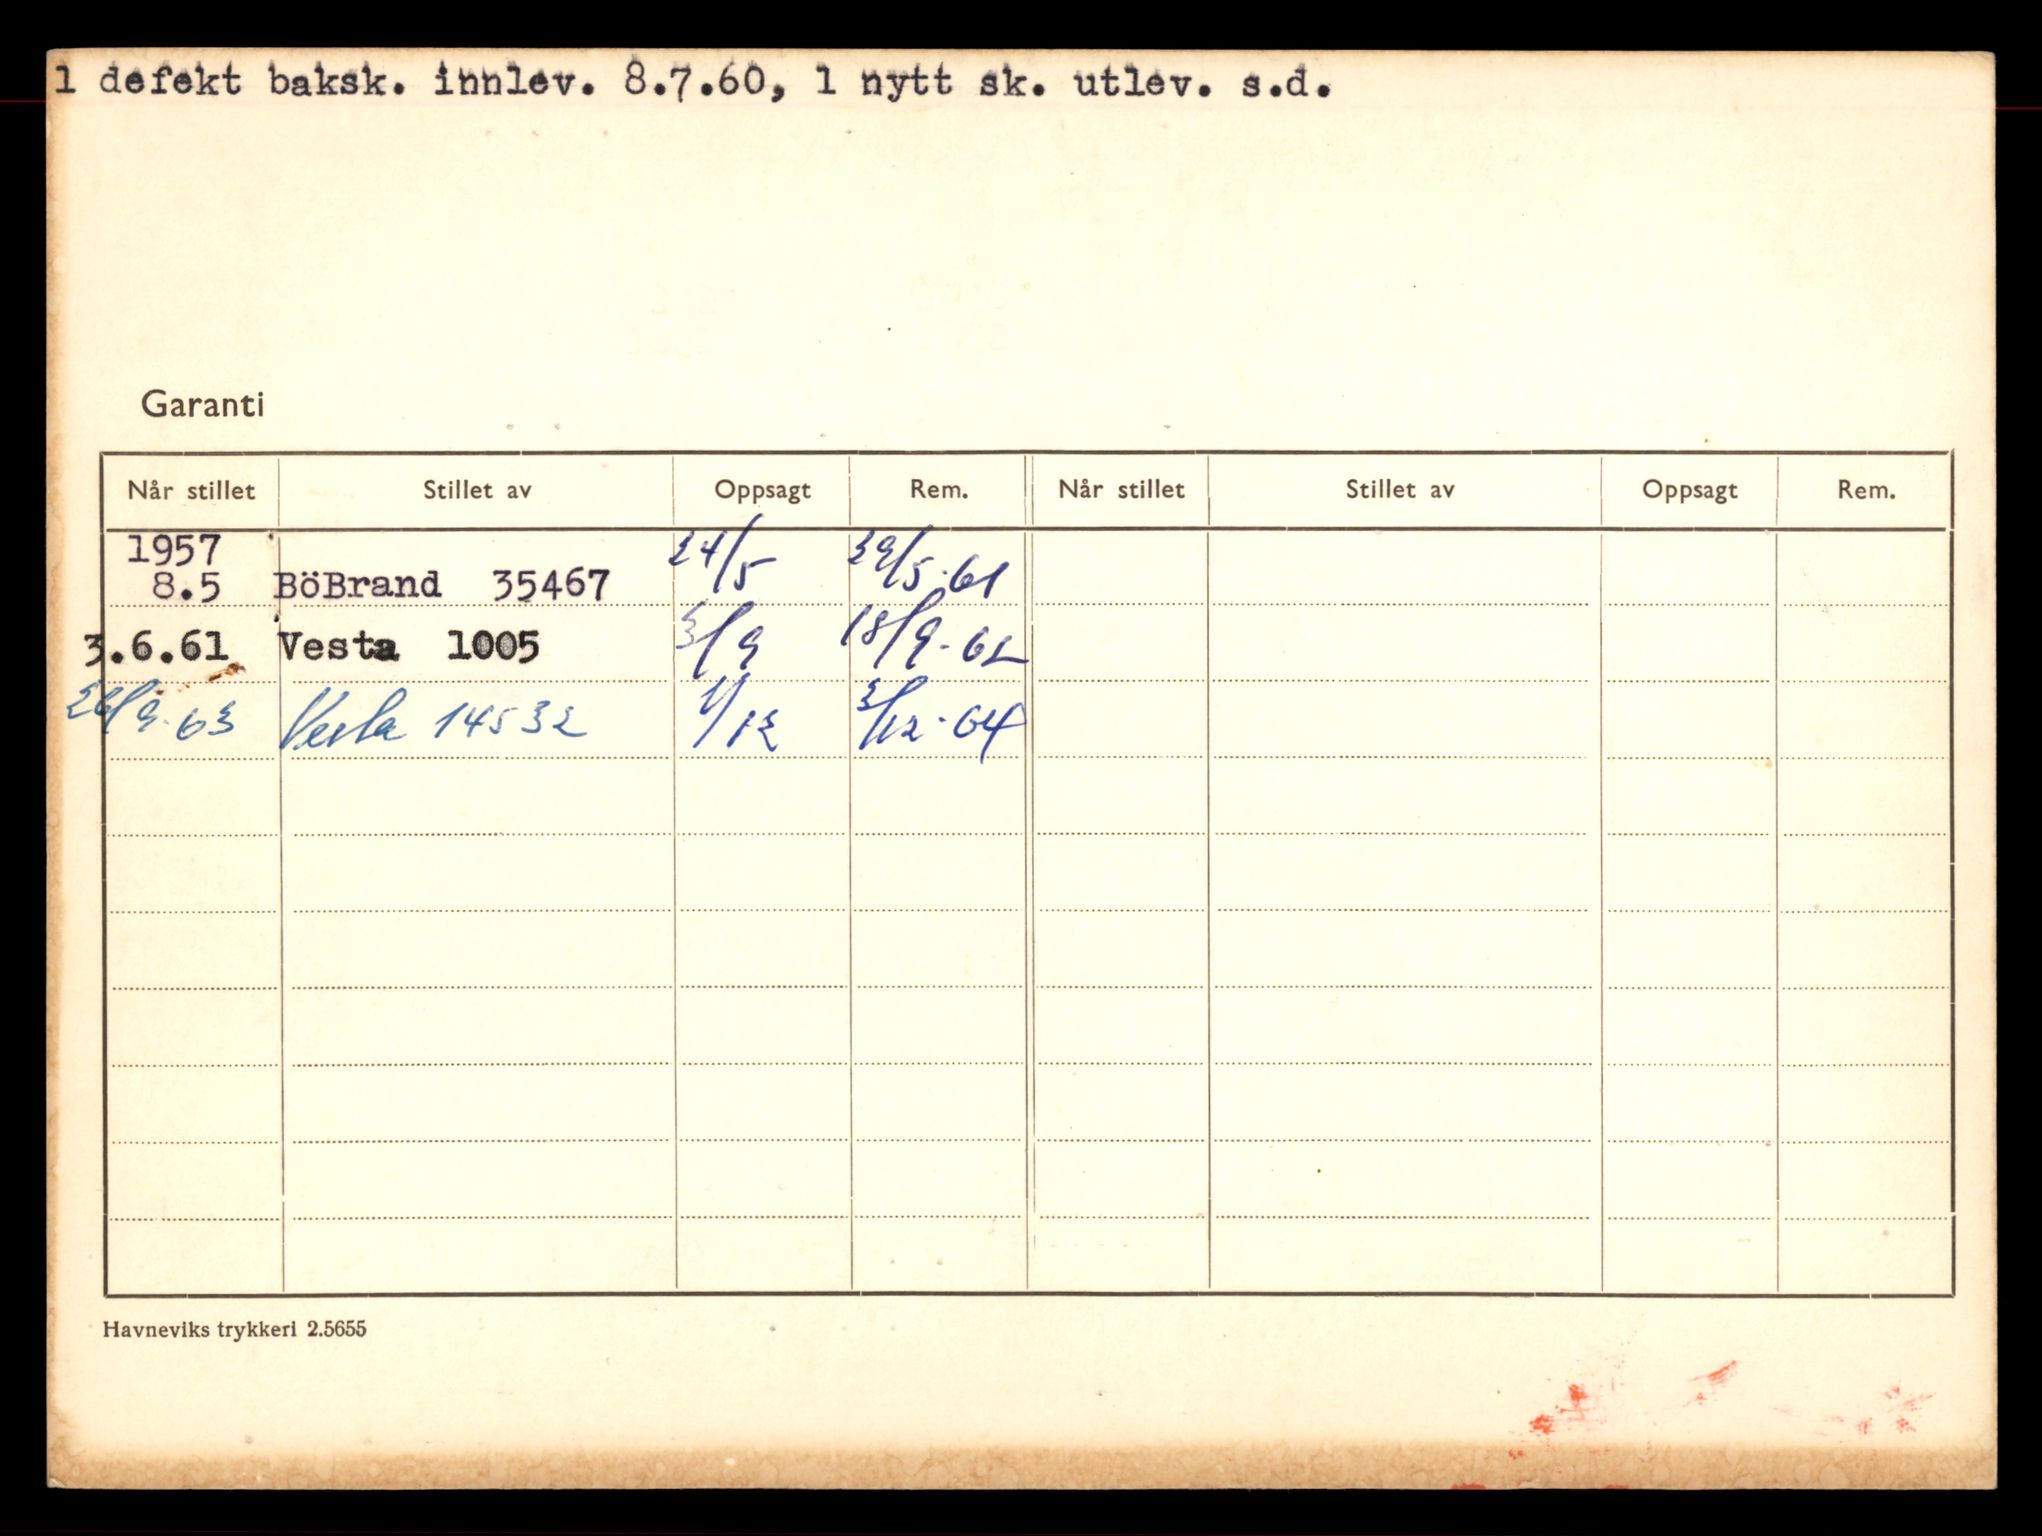 1 defekt baksk. innlev. 8.7.60, 1 nytt sk. utlev. s.d.
Garanti
Når stillet Stillet av Oppsagt Rem. Når stillet Stillet av Oppsagt Rem.
1957
8.5 BöBrand 35467 24/5 29/5-61
3.6.61 Vesta 1005 3/9 18/9-62
26/9-63 Vesta 14532 1/12 2/12-64
Havneviks trykkeri 2.5655